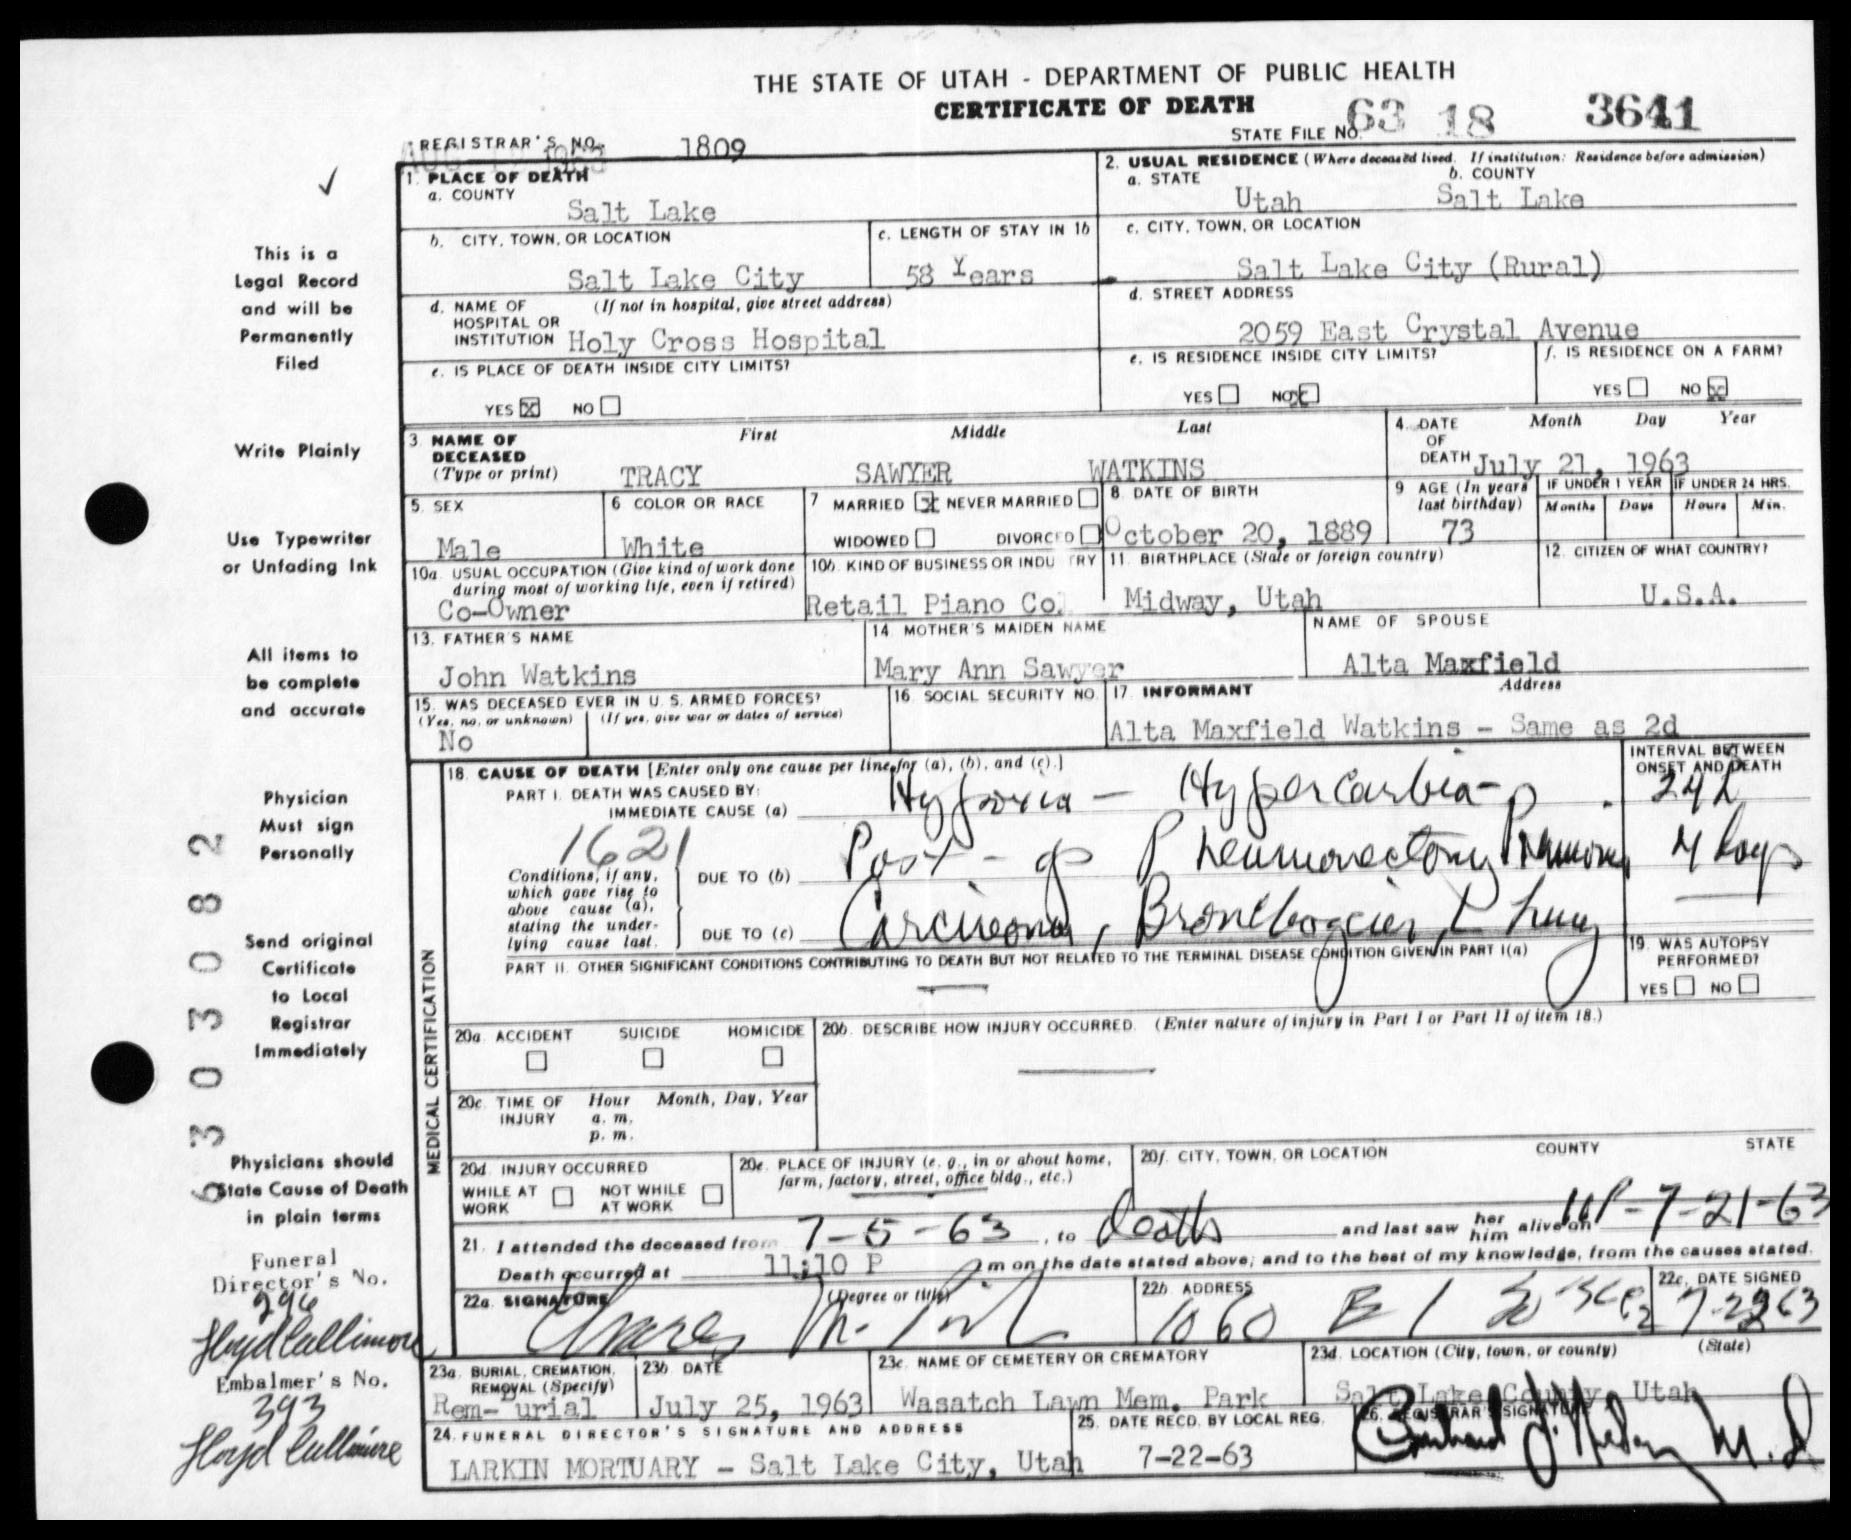 THE STATE OF UTAH - DEPARTMENT OF PUBLIC HEALTH
CERTIFICATE OF DEATH
STATE FILE NO. 63 18 3641
REGISTRAR'S NO. 1809
1. PLACE OF DEATH
a. COUNTY
Salt Lake
2. USUAL RESIDENCE (Where deceased lived. If institution: Residence before admission)
a. STATE b. COUNTY
Utah Salt Lake
b. CITY, TOWN, OR LOCATION
Salt Lake City
c. LENGTH OF STAY IN 1b
58 Years
c. CITY, TOWN, OR LOCATION
Salt Lake City (Rural)
d. NAME OF (If not in hospital, give street address)
HOSPITAL OR
INSTITUTION Holy Cross Hospital
d. STREET ADDRESS
2059 East Crystal Avenue
e. IS PLACE OF DEATH INSIDE CITY LIMITS?
YES X NO
e. IS RESIDENCE INSIDE CITY LIMITS?
YES NO X
f. IS RESIDENCE ON A FARM?
YES NO X
3. NAME OF First Middle Last
DECEASED
(Type or print) TRACY SAWYER WATKINS
4. DATE Month Day Year
OF
DEATH July 21, 1963
5. SEX
Male
6 COLOR OR RACE
White
7 MARRIED X NEVER MARRIED
WIDOWED DIVORCED
8. DATE OF BIRTH
October 20, 1889
9 AGE (In years
last birthday)
73
IF UNDER 1 YEAR IF UNDER 24 HRS.
Months Days Hours Min.
10a. USUAL OCCUPATION (Give kind of work done
during most of working life, even if retired)
Co-Owner
10b. KIND OF BUSINESS OR INDU TRY
Retail Piano Co.
11. BIRTHPLACE (State or foreign country)
Midway, Utah
12. CITIZEN OF WHAT COUNTRY?
U.S.A.
13. FATHER'S NAME
John Watkins
14. MOTHER'S MAIDEN NAME
Mary Ann Sawyer
NAME OF SPOUSE
Alta Maxfield
15. WAS DECEASED EVER IN U. S. ARMED FORCES?
(Yes, no, or unknown) (If yes, give war or dates of service)
No
16. SOCIAL SECURITY NO.
17. INFORMANT Address
Alta Maxfield Watkins - Same as 2d
MEDICAL CERTIFICATION
18. CAUSE OF DEATH [Enter only one cause per line for (a), (b), and (c).]
INTERVAL BETWEEN
ONSET AND DEATH
PART I. DEATH WAS CAUSED BY:
IMMEDIATE CAUSE (a) Hypoxia - Hypercarbia - 24h
1621
Conditions, if any,
which gave rise to
above cause (a),
stating the under-
lying cause last.
DUE TO (b) Post-op Pneumonectomy 4 days
DUE TO (c) Carcinoma, Bronchogenic, L Lung
PART II. OTHER SIGNIFICANT CONDITIONS CONTRIBUTING TO DEATH BUT NOT RELATED TO THE TERMINAL DISEASE CONDITION GIVEN IN PART I(a)
19. WAS AUTOPSY
PERFORMED?
YES NO
20a. ACCIDENT SUICIDE HOMICIDE
20b. DESCRIBE HOW INJURY OCCURRED. (Enter nature of injury in Part I or Part II of item 18.)
20c. TIME OF Hour Month, Day, Year
INJURY a. m.
p. m.
20d. INJURY OCCURRED
WHILE AT NOT WHILE
WORK AT WORK
20e. PLACE OF INJURY (e. g., in or about home,
farm, factory, street, office bldg., etc.)
20f. CITY, TOWN, OR LOCATION COUNTY STATE
21. I attended the deceased from 7-5-63, to death and last saw her him alive on 11P-7-21-63
Death occurred at 11:10 P m on the date stated above; and to the best of my knowledge, from the causes stated.
22a. SIGNATURE (Degree or title)
22b. ADDRESS
1060 E 1 So
22c. DATE SIGNED
7-22-63
23a. BURIAL, CREMATION,
REMOVAL (Specify)
Rem-Burial
23b. DATE
July 25, 1963
23c. NAME OF CEMETERY OR CREMATORY
Wasatch Lawn Mem. Park
23d. LOCATION (City, town, or county) (State)
Salt Lake County, Utah
24. FUNERAL DIRECTOR'S SIGNATURE AND ADDRESS
LARKIN MORTUARY - Salt Lake City, Utah
25. DATE RECD. BY LOCAL REG.
7-22-63
26. REGISTRAR'S SIGNATURE
M.D
This is a
Legal Record
and will be
Permanently
Filed
Write Plainly
Use Typewriter
or Unfading Ink
All items to
be complete
and accurate
Physician
Must sign
Personally
Send original
Certificate
to Local
Registrar
Immediately
Physicians should
State Cause of Death
in plain terms
Funeral
Director's No.
296
Floyd Cullimore
Embalmer's No.
393
Floyd Cullimore
6303082